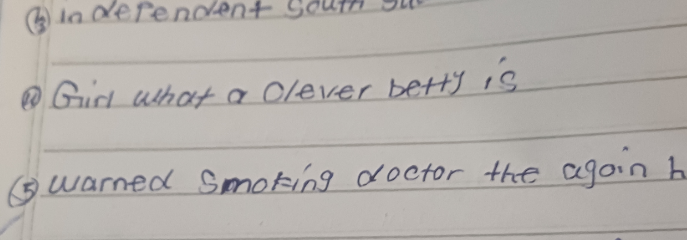 independent South
Girl what a clever betty is
(5) warned smoking doctor the again